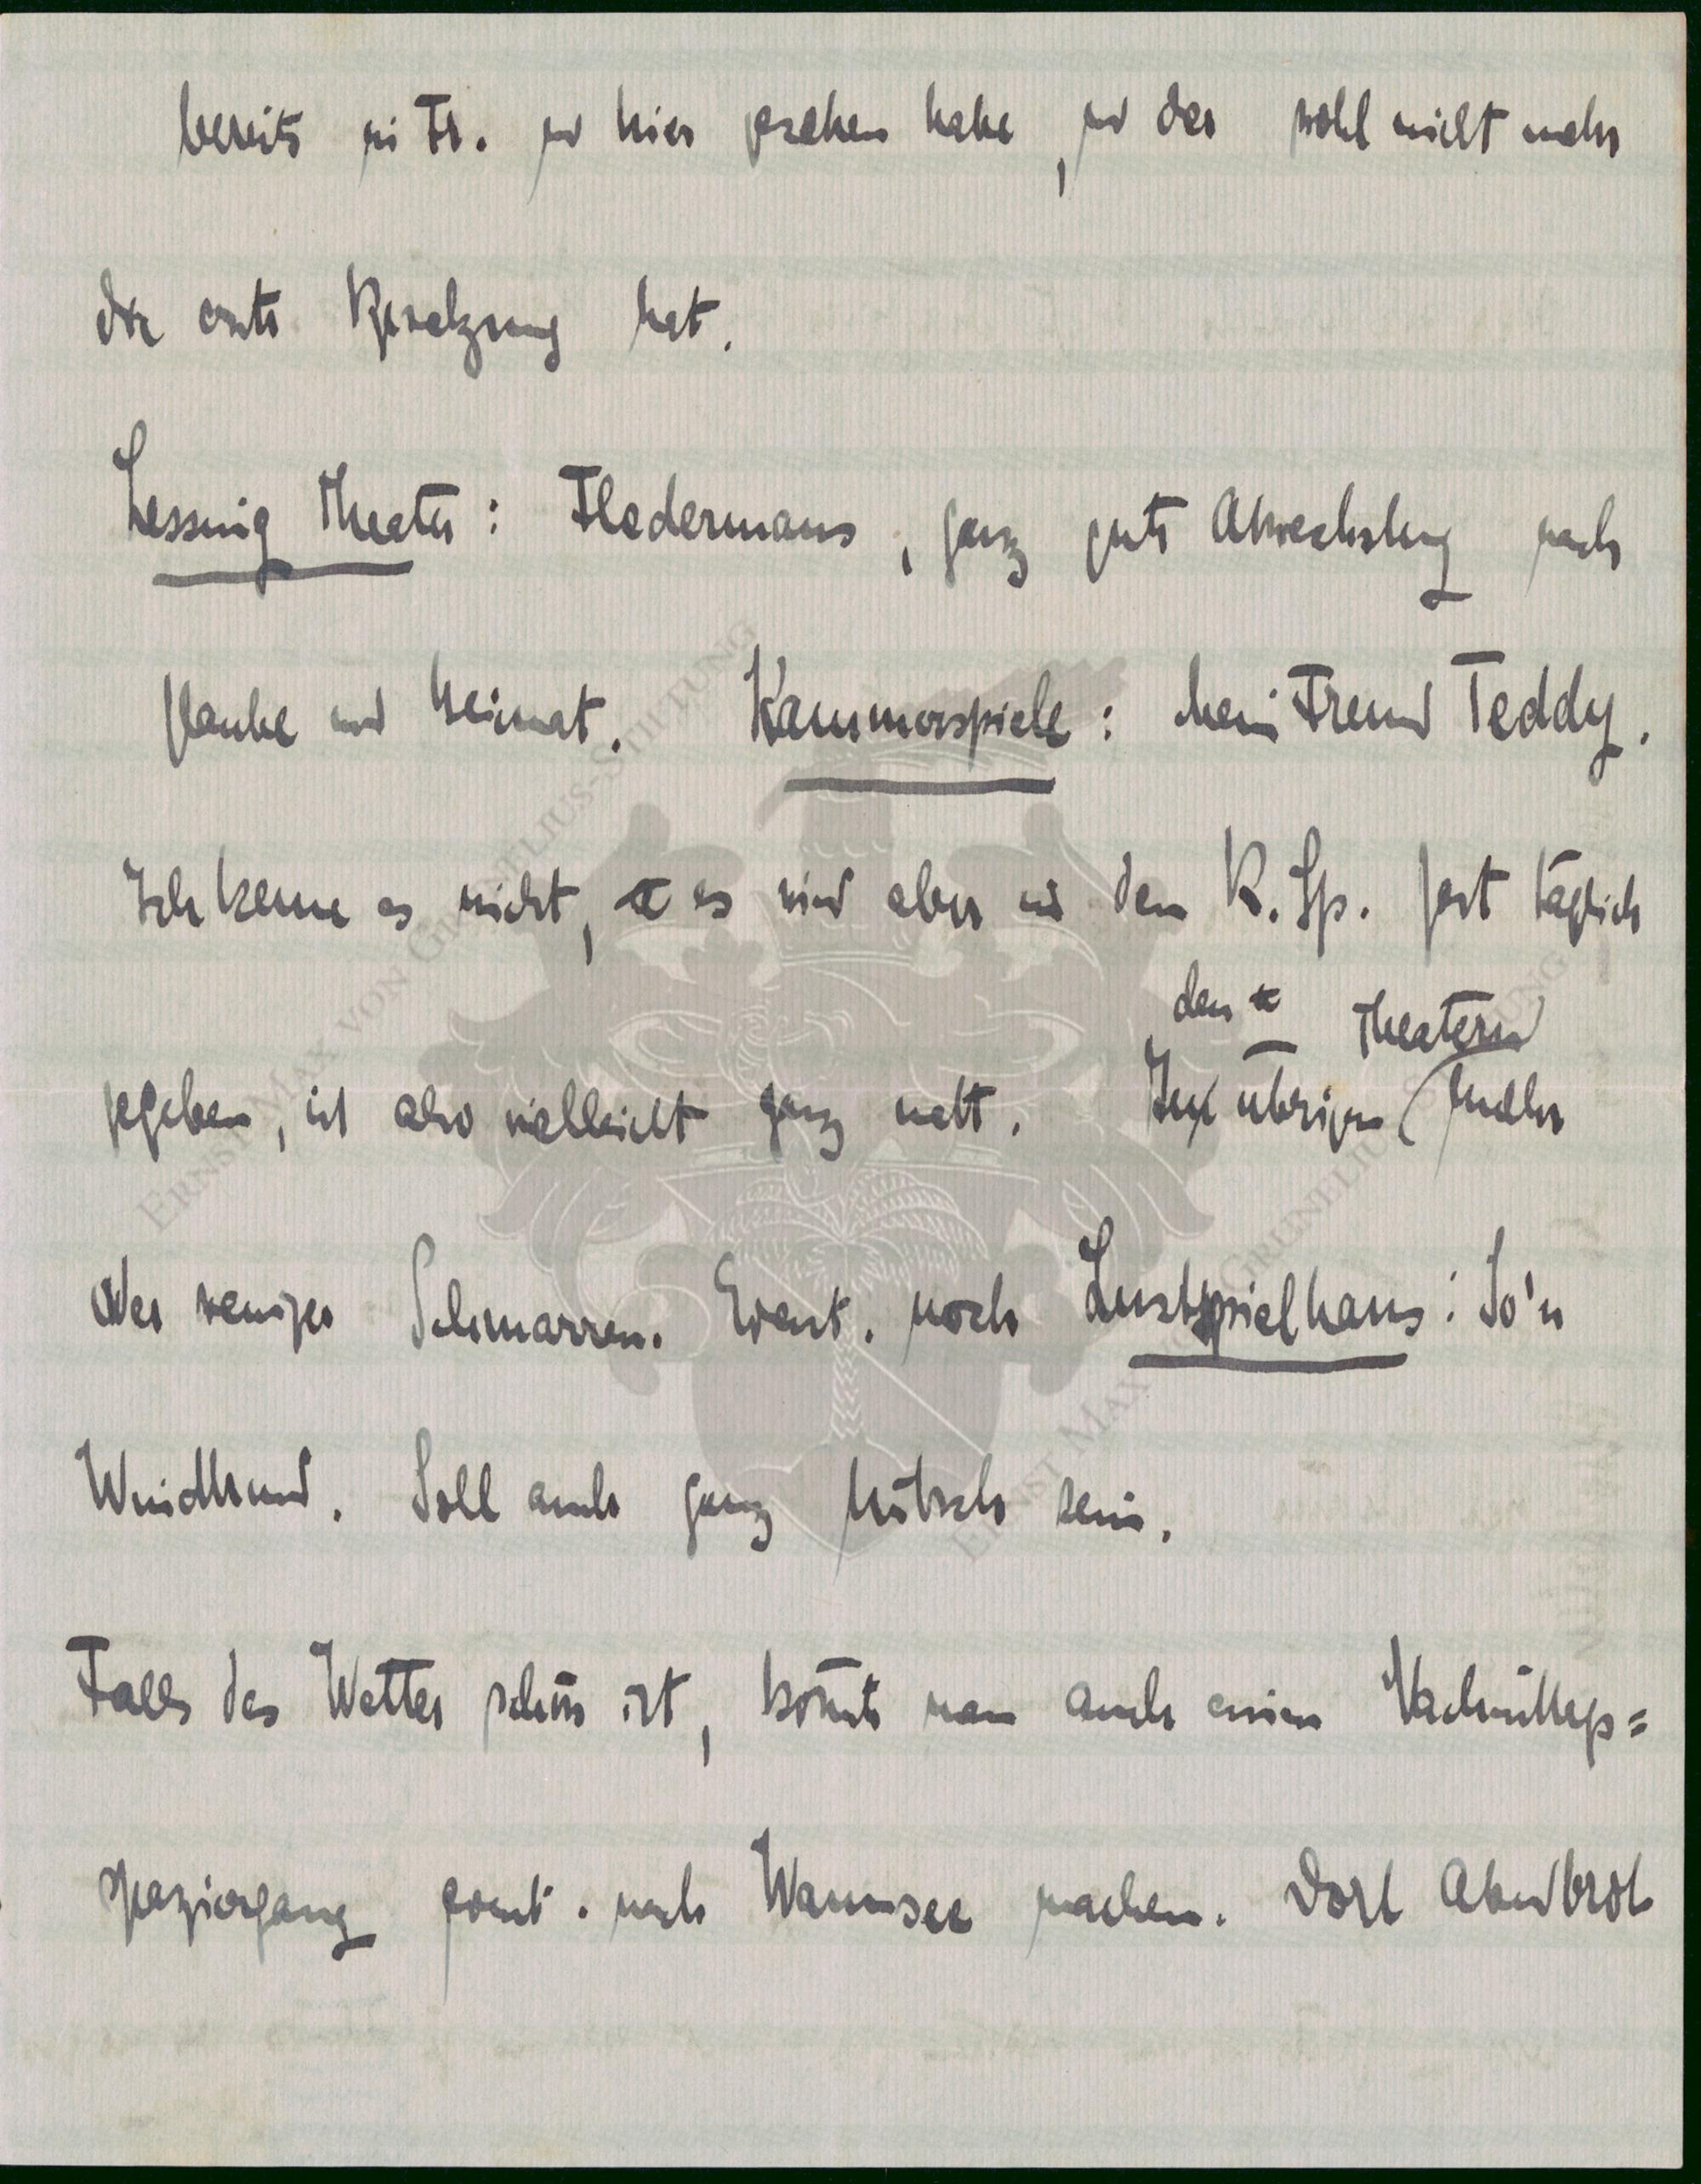 bereits in Fr. u hier gesehen habe, u das wohl nicht mehr
die erste Besetzung hat.
Lessing Theater: Fledermaus, ganz gute Abwechslung nach
Glaube und Heimat. Kammerspiele: Mein Freund Teddy.
Ich kenne es nicht, es wird aber in den K. Sp. fast täglich
den Theatern
gegeben, ist also vielleicht ganz nett. In übrigen mehr
oder weniger Schmarren. Event. noch Lustspielhaus: So'n
Windhund. Soll auch ganz hübsch sein.
Falls das Wetter schön ist, könnte man auch einen Nachmittags=
spaziergang event. nach Wannsee machen. Dort Abendbrot
ERNST MAX VON GRUNELIUS-STIFTUNG
ERNST MAX VON GRUNELIUS-STIFTUNG